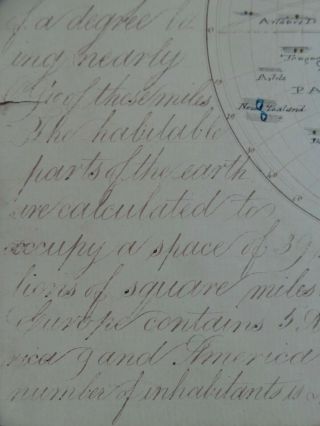 of a degree be
ing nearly
of these miles
The habitable
parts of the earth
are calculated to
occupy a space of 39
lions of square miles
Europe contains 3
rica 9 and America
number of inhabitants is
New Zealand